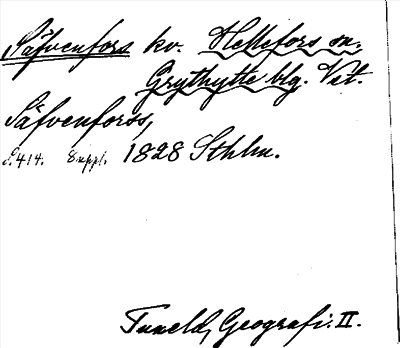 Säfvenfors kv. Hellefors sn.
Grythytte blg. Vet.
Säfvenforss,
S. 414. Suppl. 1828 Sthlm.
Tuneld, Geografi. II.